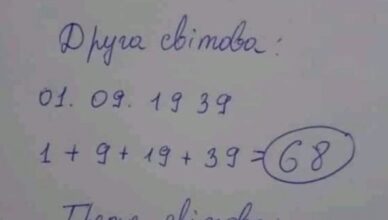 Друга світова:
01. 09. 19 39
1 + 9 + 19 + 39 = 68